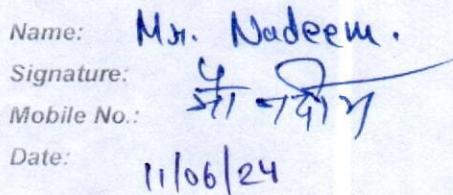 Name: Mr. Nadeem.
Signature: मो नदीम
Mobile No.:
Date: 11/06/24